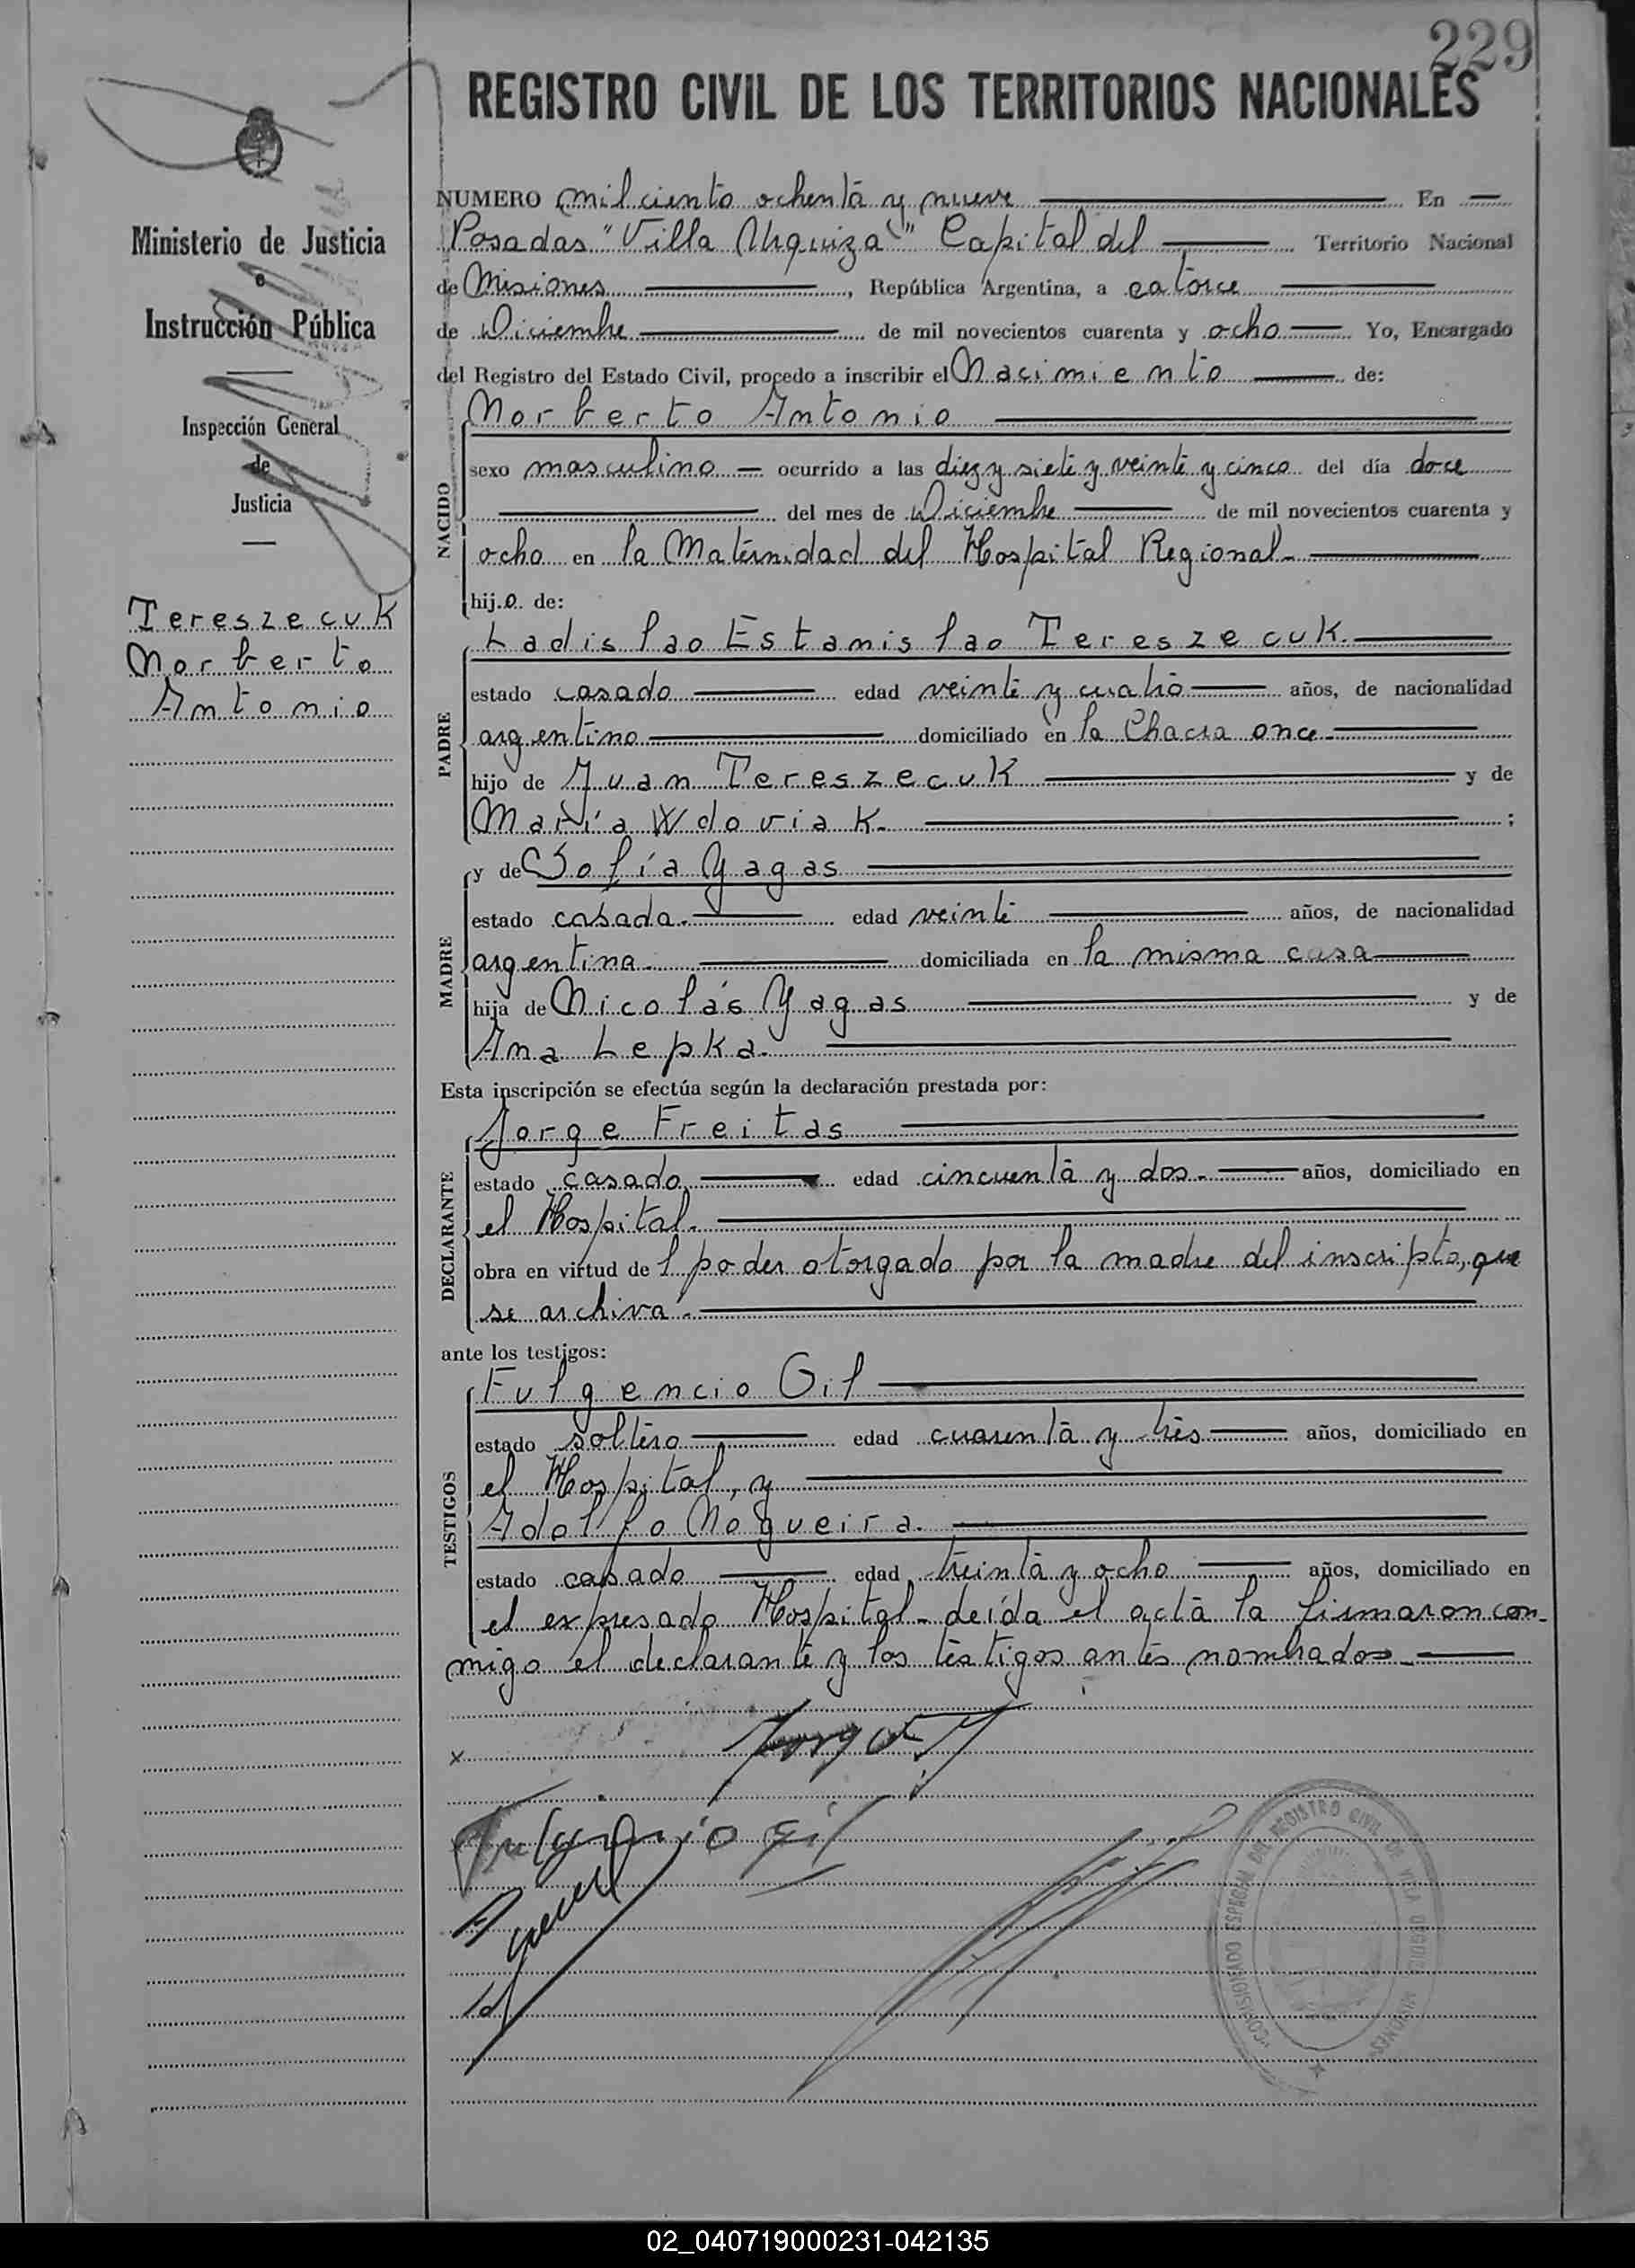 229
REGISTRO CIVIL DE LOS TERRITORIOS NACIONALES
Ministerio de Justicia
e
Instrucción Pública
Inspección General
de
Justicia
Tereszecuk
Norberto
Antonio
NUMERO mil ciento ochenta y nueve En
Posadas "Villa Urquiza" Capital del Territorio Nacional
de Misiones, República Argentina, a catorce
de Diciembre de mil novecientos cuarenta y ocho Yo, Encargado
del Registro del Estado Civil, procedo a inscribir el Nacimiento de:
Norberto Antonio
NACIDO
sexo masculino ocurrido a las diez y siete y veinte y cinco del día doce
del mes de Diciembre de mil novecientos cuarenta y
ocho en la Maternidad del Hospital Regional.
hijo de:
PADRE
Ladislao Estanislao Tereszecuk.
estado casado edad veinte y cuatro años, de nacionalidad
argentino domiciliado en la Chacra once.
hijo de Juan Tereszecuk y de
María Wdoviak. ;
MADRE
y de Sofía Yagas
estado casada. edad veinte años, de nacionalidad
argentina. domiciliada en la misma casa
hija de Nicolás Yagas y de
Ana Lepka.
Esta inscripción se efectúa según la declaración prestada por:
DECLARANTE
Jorge Freitas
estado casado edad cincuenta y dos. años, domiciliado en
el Hospital.
obra en virtud del poder otorgado por la madre del inscripto, que
se archiva.
ante los testigos:
TESTIGOS
Fulgencio Gil
estado soltero edad cuarenta y tres años, domiciliado en
el Hospital, y
Adolfo Nogueira.
estado casado edad treinta y ocho años, domiciliado en
el expresado Hospital. leída el acta la firmaron con-
migo el declarante y los testigos antes nombrados.
x
Fulgencio Gil
REGISTRO CIVIL DE VILLA URQUIZA MISIONES
02_040719000231-042135